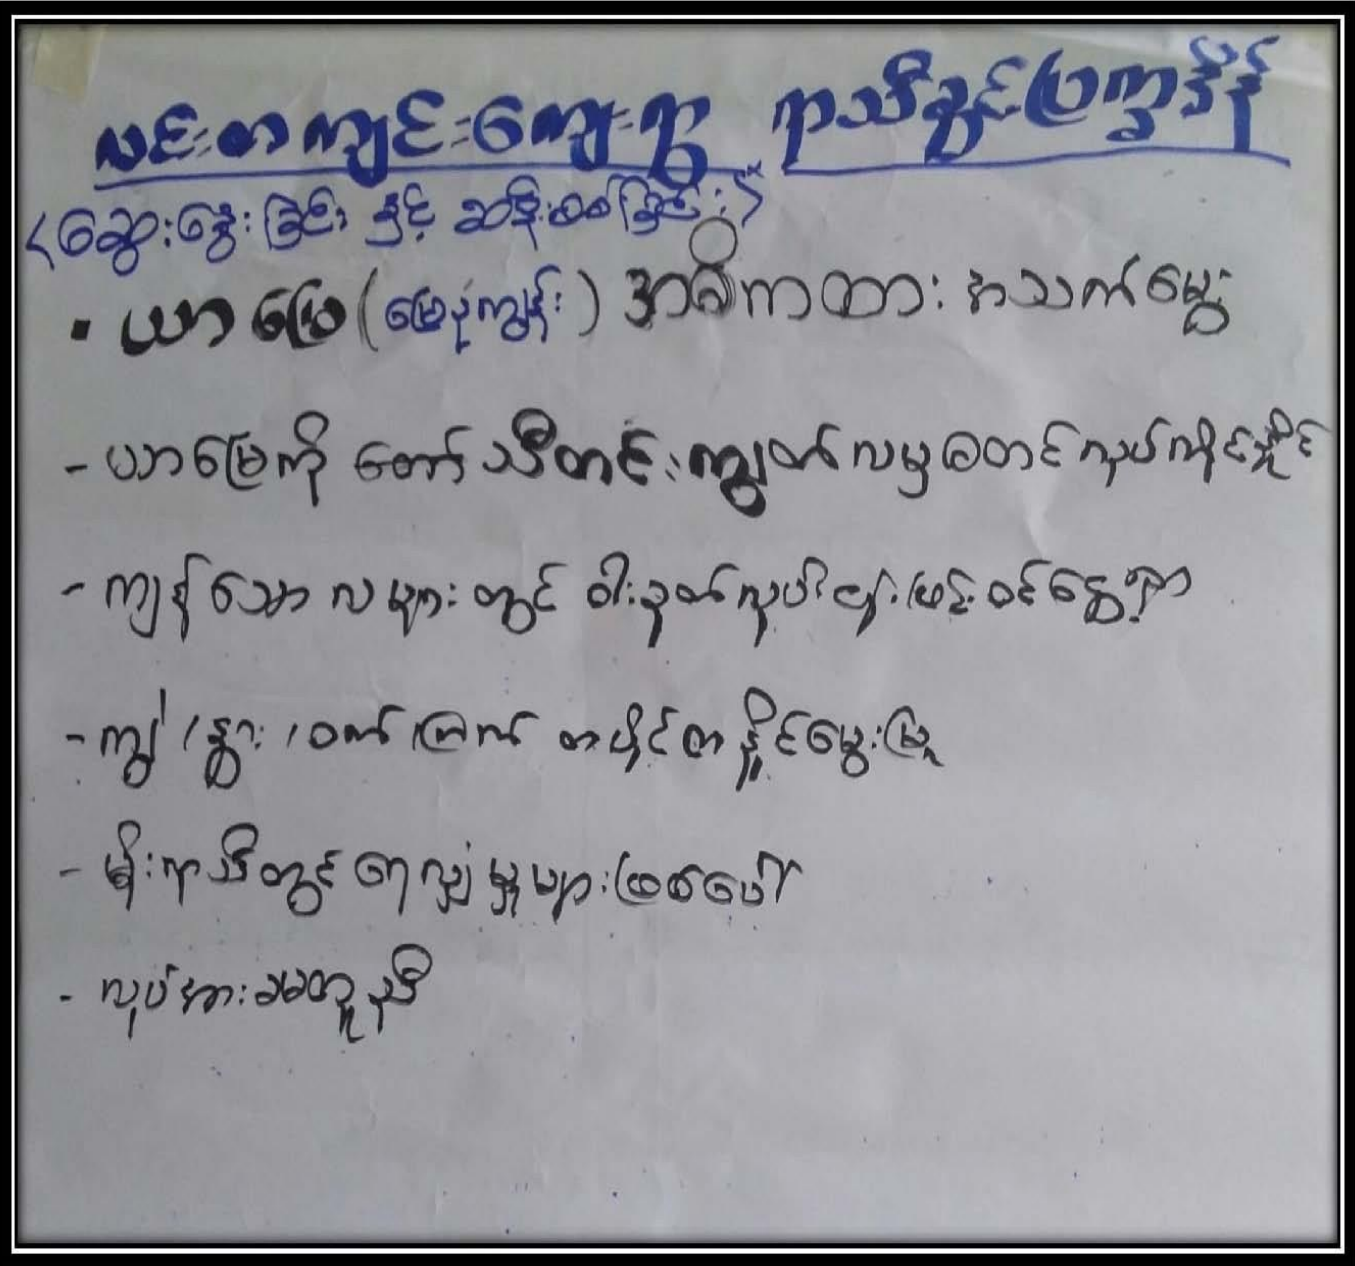 လင်းတကျင်းကျေးရွာ ရာသီခွင်ပြက္ခဒိန်
<ဆွေးနွေးခြင်း နှင့် ဆန်းစစ်ခြင်း>
▪ ယာမြေ (မြေနုကျွန်း) အဓိကထား အသက်မွေး
- ယာမြေကို တော်သီတင်းကျွတ်လမှ စတင်လုပ်ကိုင်နိုင်
- ကျန်သောလများတွင် ဝါးခုတ်လုပ်ငန်းဖြင့်ဝင်ငွေရှာ
- ကျွဲ/နွား/ဝက်/ကြက် တပိုင်တနိုင်မွေးမြူ
- မိုးရာသီတွင် ရေလျှံမှုများဖြစ်ပေါ်
- လုပ်အားခမတူညီ